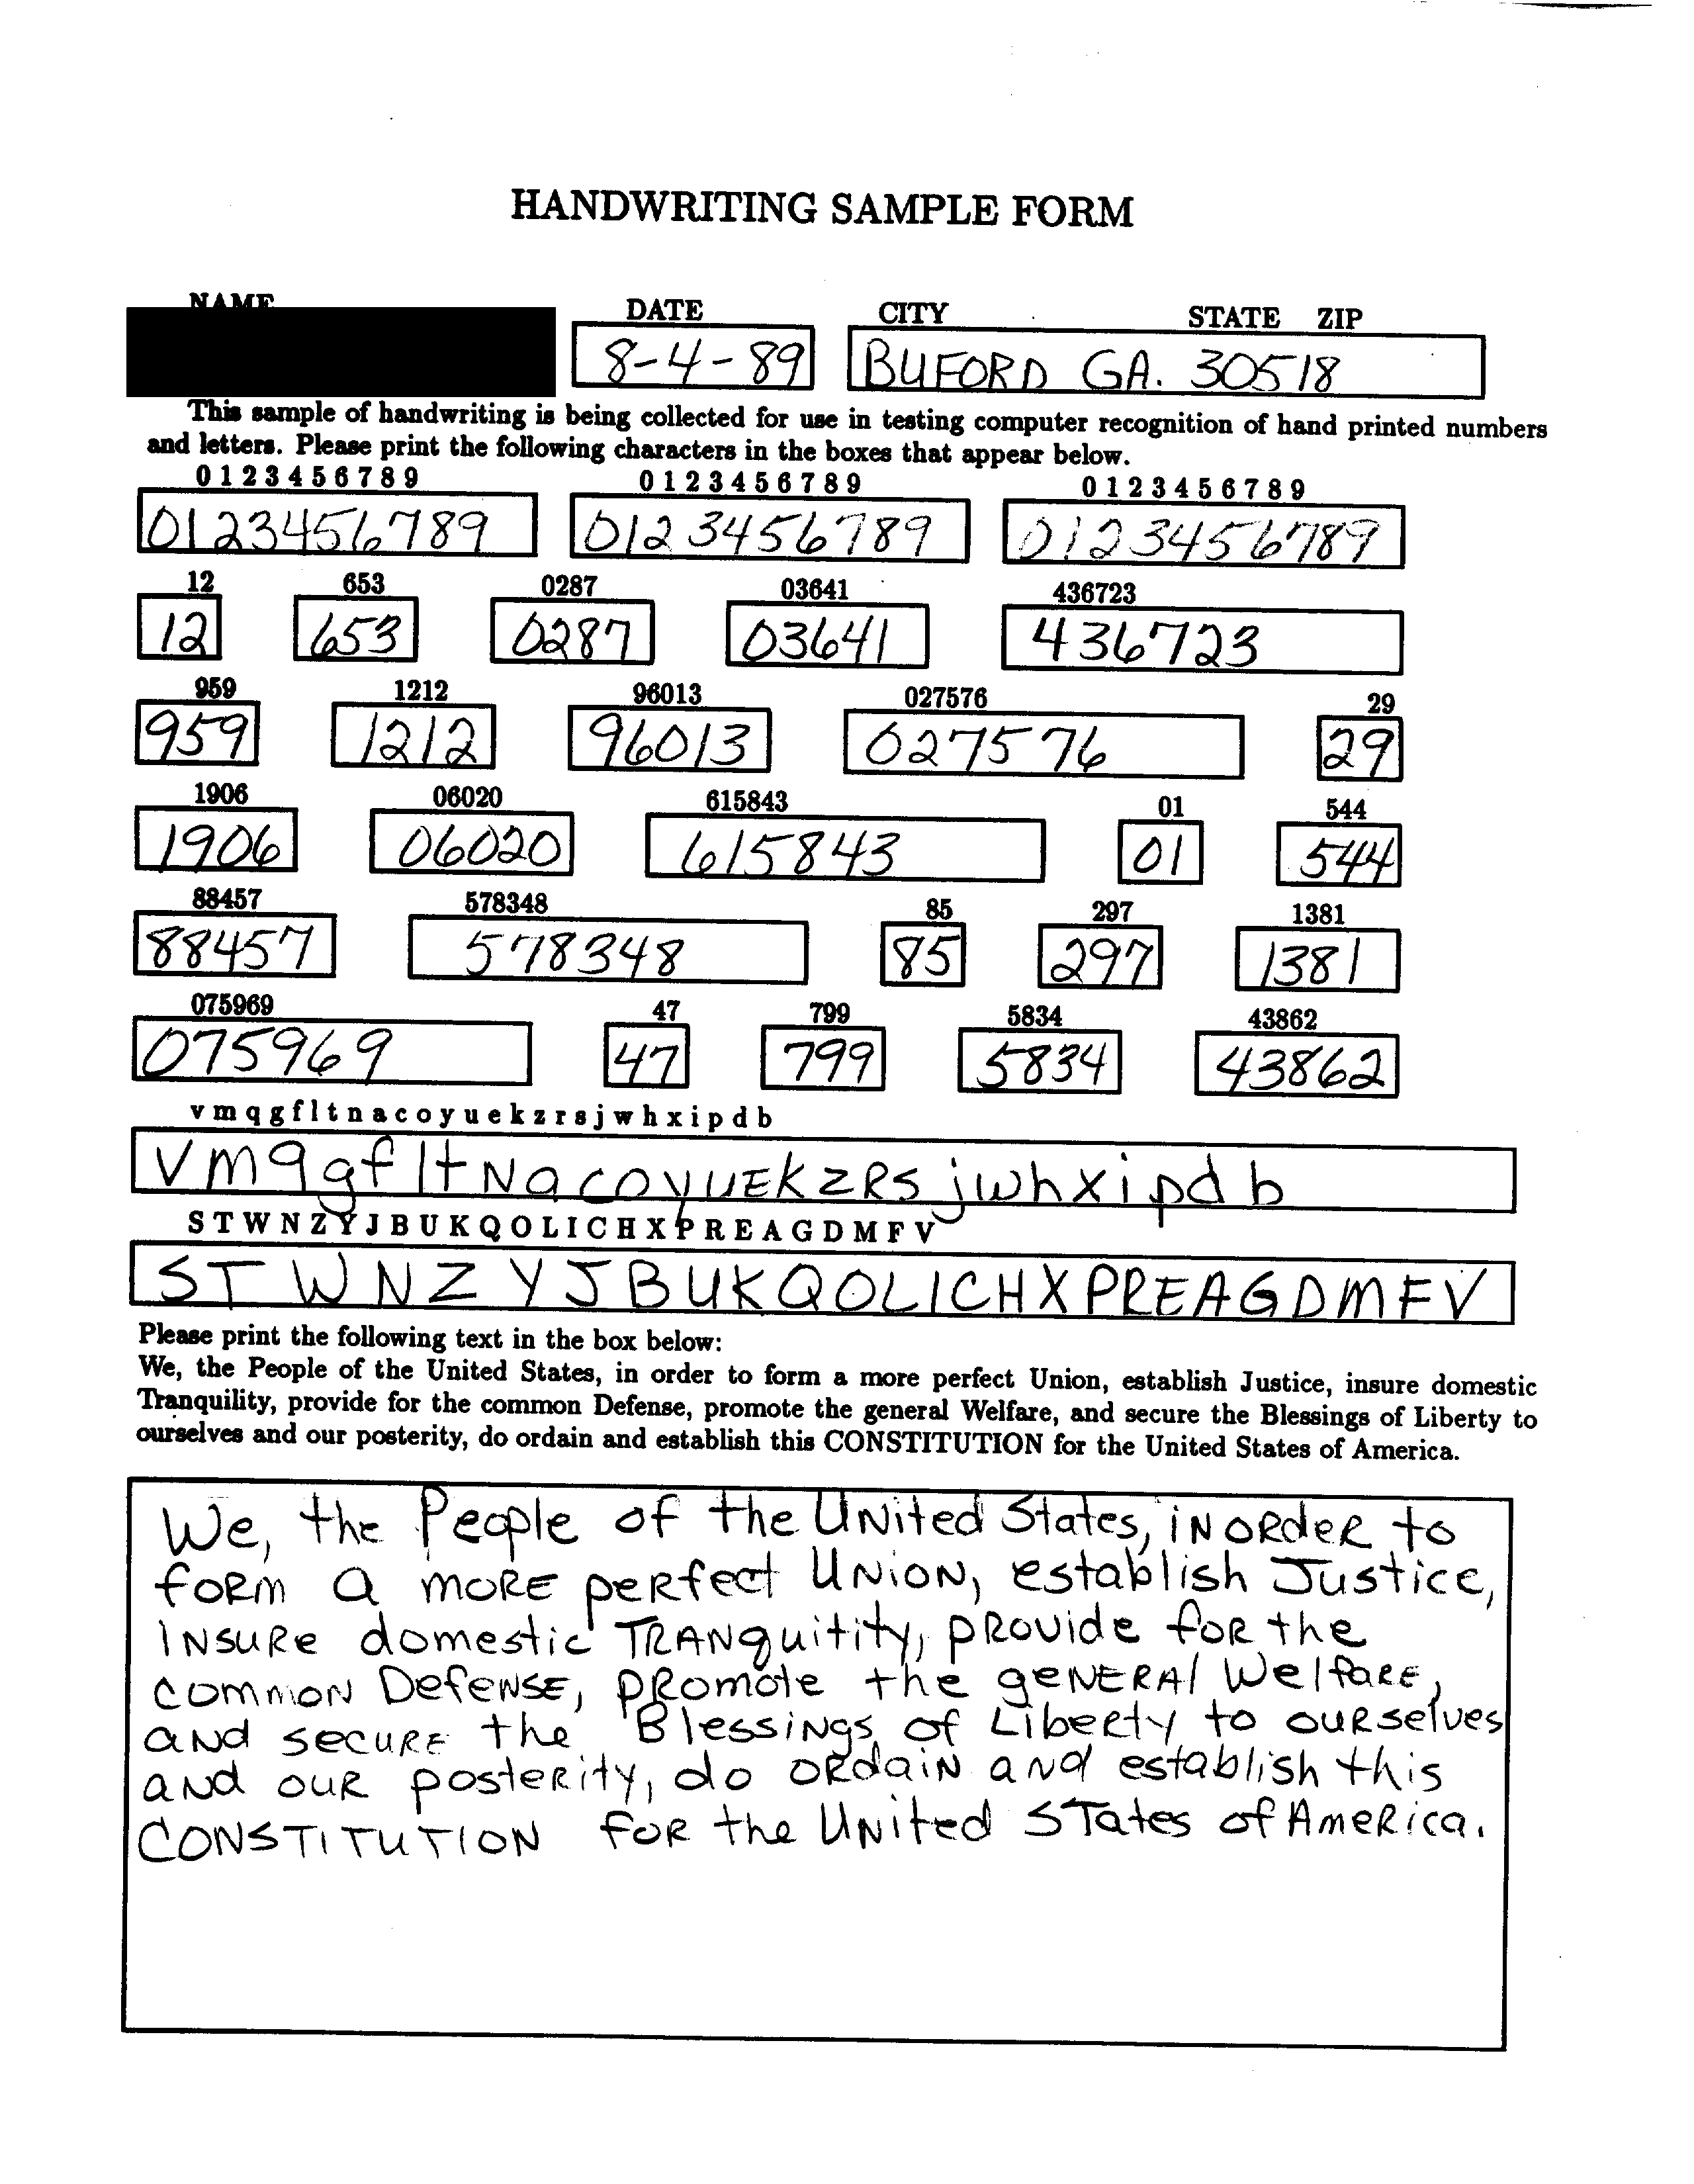 HANDWRITING SAMPLE FORM
NAME DATE CITY STATE ZIP
8-4-89 BUFORD GA. 30518
This sample of handwriting is being collected for use in testing computer recognition of hand printed numbers
and letters. Please print the following characters in the boxes that appear below.
0 1 2 3 4 5 6 7 8 9 0 1 2 3 4 5 6 7 8 9 0 1 2 3 4 5 6 7 8 9
0123456789 0123456789 0123456789
12 653 0287 03641 436723
12 653 0287 03641 436723
959 1212 96013 027576 29
959 1212 96013 027576 29
1906 06020 615843 01 544
1906 06020 615843 01 544
88457 578348 85 297 1381
88457 578348 85 297 1381
075969 47 799 5834 43862
075969 47 799 5834 43862
v m q g f l t n a c o y u e k z r s j w h x i p d b
vmqgfltNacoyuEKZRSjwhxipdb
S T W N Z Y J B U K Q O L I C H X P R E A G D M F V
STWNZYJBUKQOLICHXPREAGDMFV
Please print the following text in the box below:
We, the People of the United States, in order to form a more perfect Union, establish Justice, insure domestic
Tranquility, provide for the common Defense, promote the general Welfare, and secure the Blessings of Liberty to
ourselves and our posterity, do ordain and establish this CONSTITUTION for the United States of America.
We, the People of the UNited States, iN ORdeR to
foRm a moRE peRfect UNiON, establish Justice,
iNsuRe domestic TRANquitity, pRovide foR the
commoN DefeNSE, pRomote the geNERAl WelfaRE,
aNd secuRE the BlessiNgs of LibeRty to ouRselves
aNd ouR posteRity, do oRdaiN aNd establish this
CONSTITUTION foR the UNited STates of AmeRica.